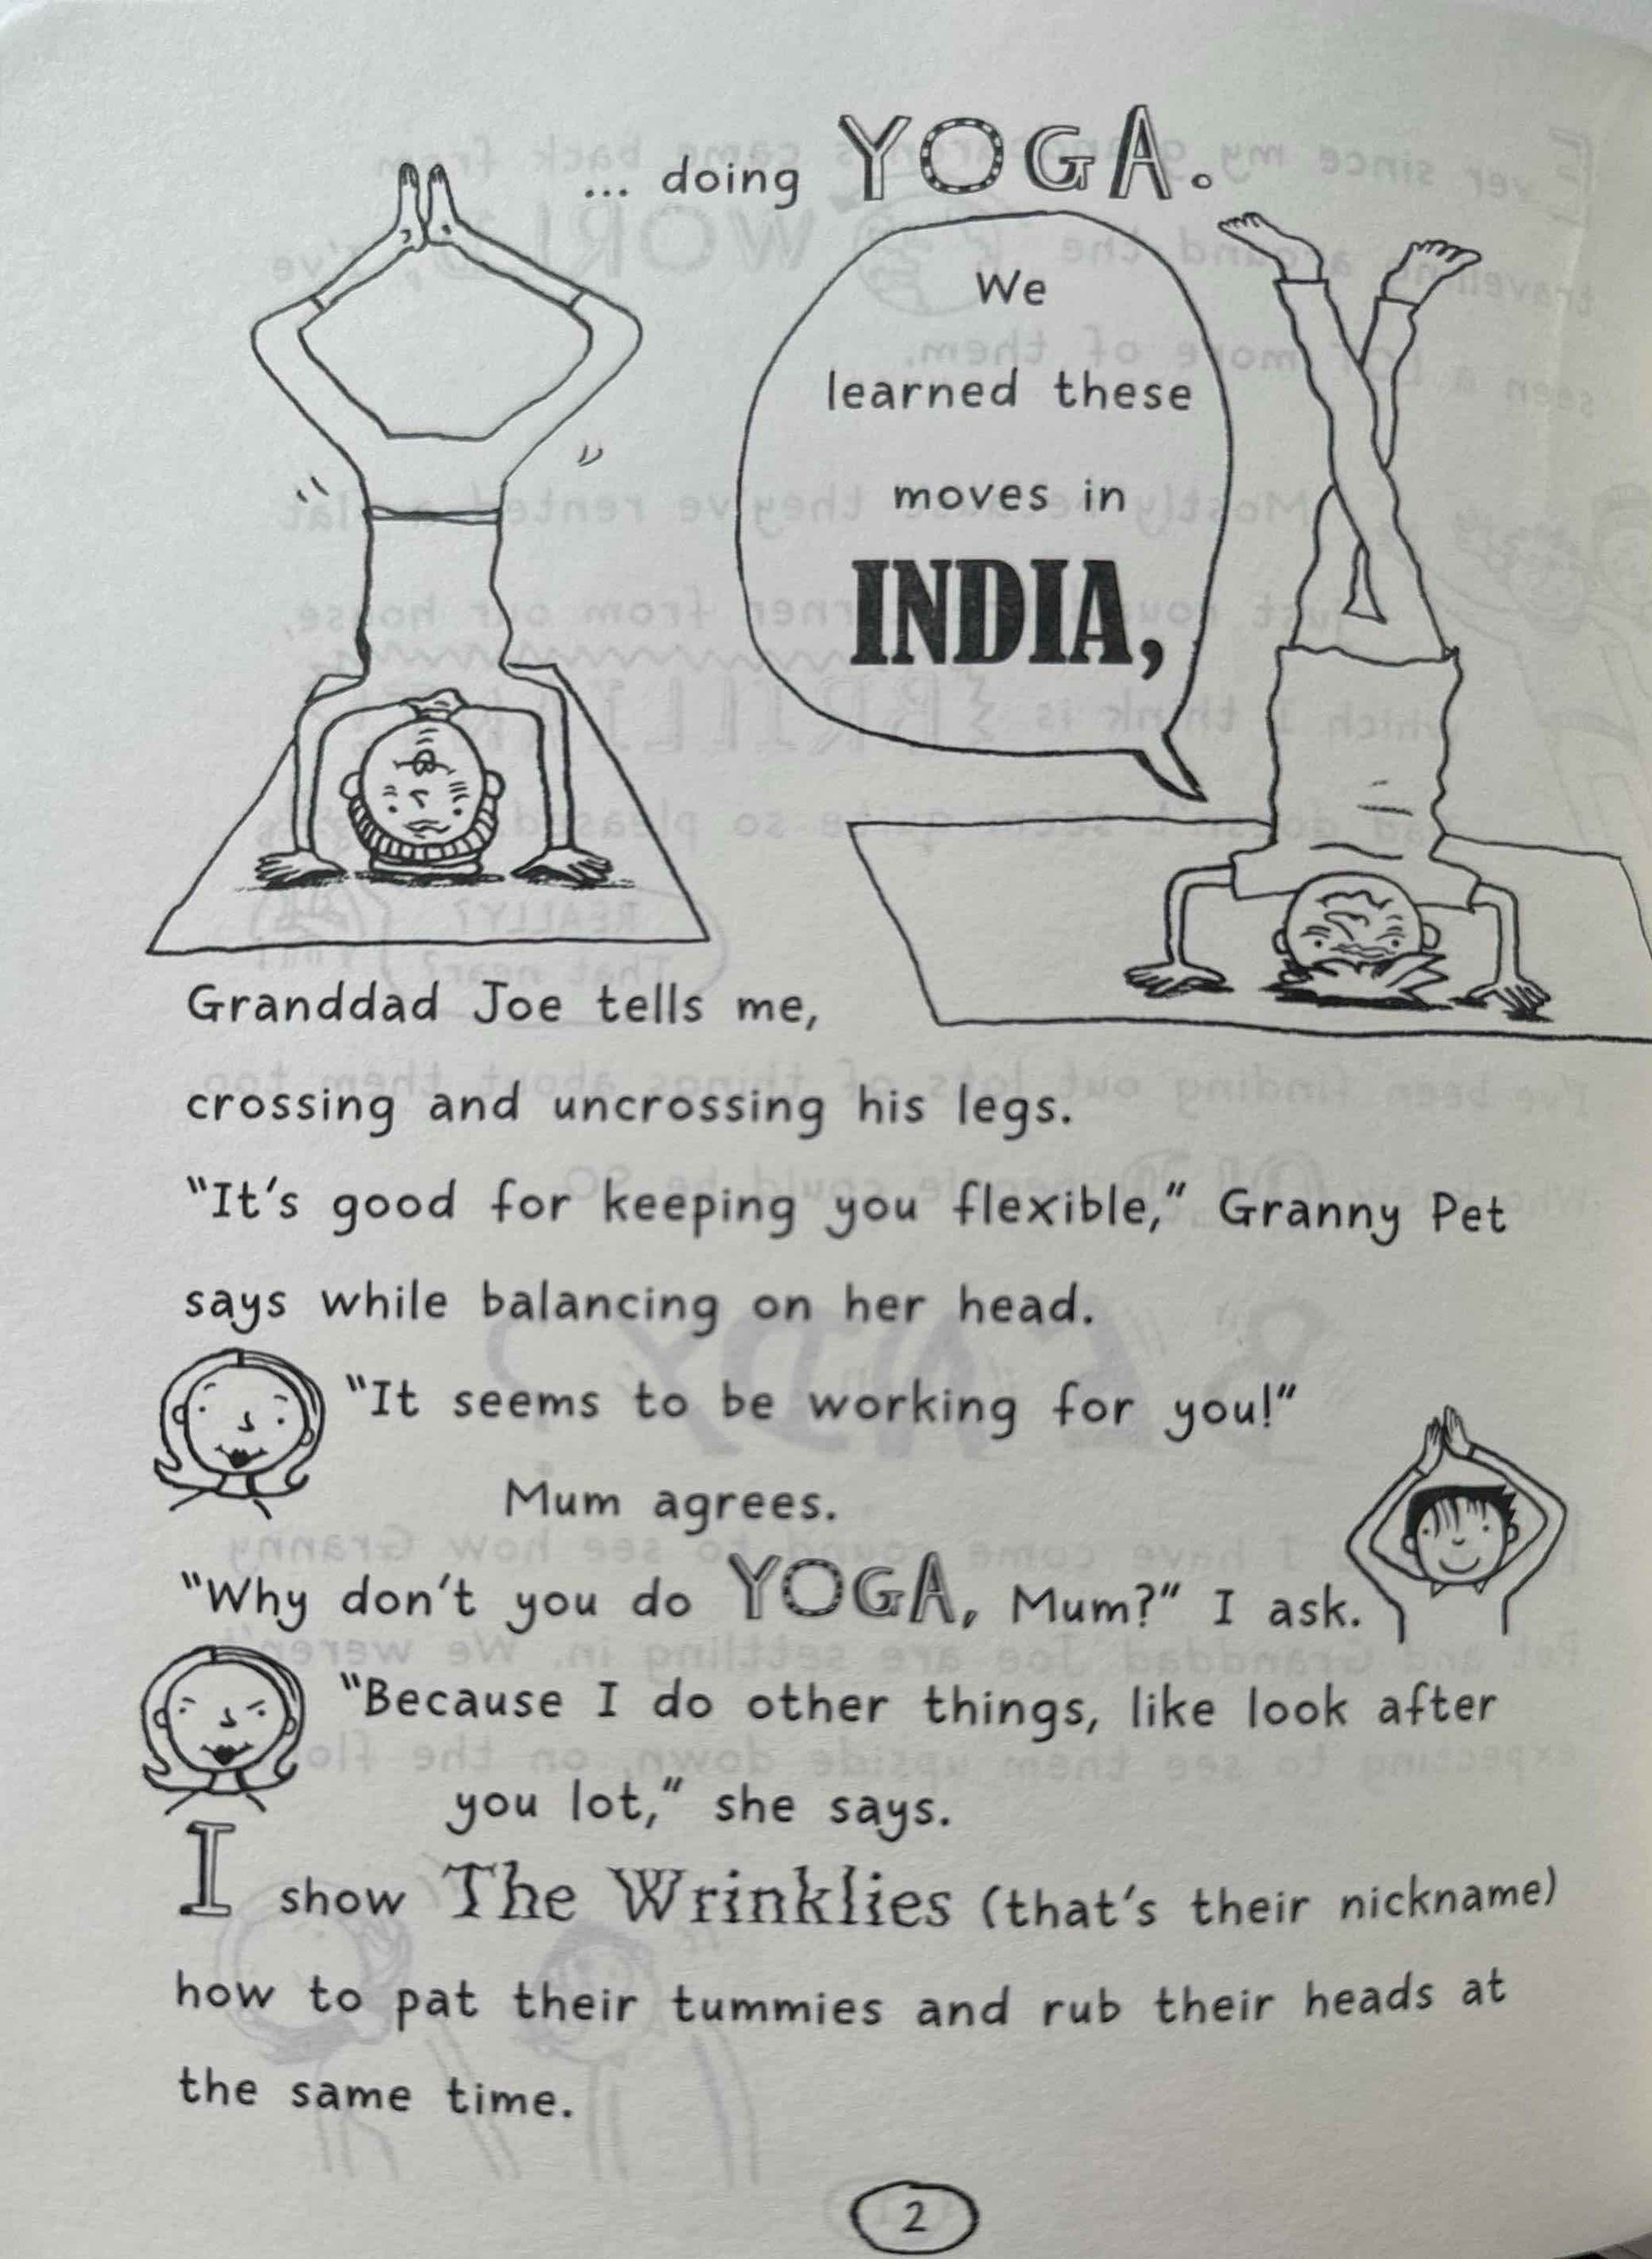 ... doing YOGA.
We
learned these
moves in
INDIA,
Granddad Joe tells me,
crossing and uncrossing his legs.
"It's good for keeping you flexible," Granny Pet
says while balancing on her head.
"It seems to be working for you!"
Mum agrees.
"Why don't you do YOGA, Mum?" I ask.
"Because I do other things, like look after
you lot," she says.
I show The Wrinklies (that's their nickname)
how to pat their tummies and rub their heads at
the same time.
2